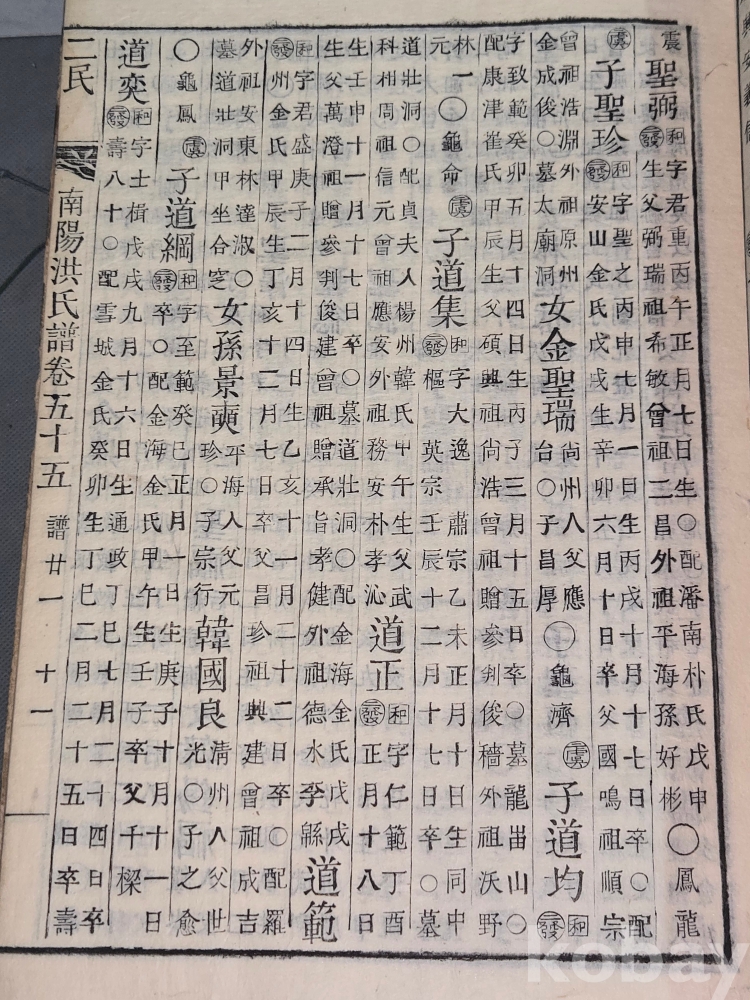 震 聖弼 和 三發 字君重丙午正月七日生○配潘南朴氏戊申
生父弼瑞祖希敏曾祖二昌外祖平海孫好彬 ○鳳龍
子聖珍 和 三發 字聖之丙申七月一日生丙戌十月十七日卒○配
安山金氏戊戌生辛卯六月十日卒父國鳴祖順宗
曾祖浩淵外祖原州
金成俊○墓太廟洞 女金聖瑞 尙州人父應
台○子昌厚 ○龜濟 子道均 和 三發
字致範癸卯五月十四日生丙子三月十五日卒○墓龍畓山○
配康津崔氏甲辰生父碩興祖尙浩曾祖贈參判俊穡外祖沃野
林一
元 ○龜命 子道集 和 三發 字大逸 肅宗乙未正月十日生同中
樞 英宗壬辰十二月十七日卒○墓
道壯洞○配貞夫人楊州韓氏甲午生父武
科相周祖信元曾祖應安外祖務安朴孝沁 道正 和 三發 字仁範丁酉
正月十八日
生壬申十一月十七日卒○墓道壯洞○配金海金氏戊戌
生父萬澄祖贈參判俊建曾祖贈承旨孝健外祖德水李緜 道範
和 三發 字君盛庚子二月十四日生乙亥十一月二十二日卒○配羅
州金氏甲辰生丁亥十二月七日卒父昌珍祖興建曾祖成吉
外祖安東林達淑○
墓道壯洞甲坐合窆 女孫景奭 平海人父元
珍○子宗行 韓國良 淸州人父世
光○子之愈
○龜鳳 子道綱 和 三發 字至範癸巳正月一日生庚子十月十一日
卒○配金海金氏甲午生壬子卒父千樑
道奕 和 三發 字士楫戊戌九月十六日生通政丁巳七月二十四日卒
壽八十○配雪城金氏癸卯生丁巳二月二十五日卒壽
二民 南陽洪氏譜卷五十五 譜廿一 十一
kobay